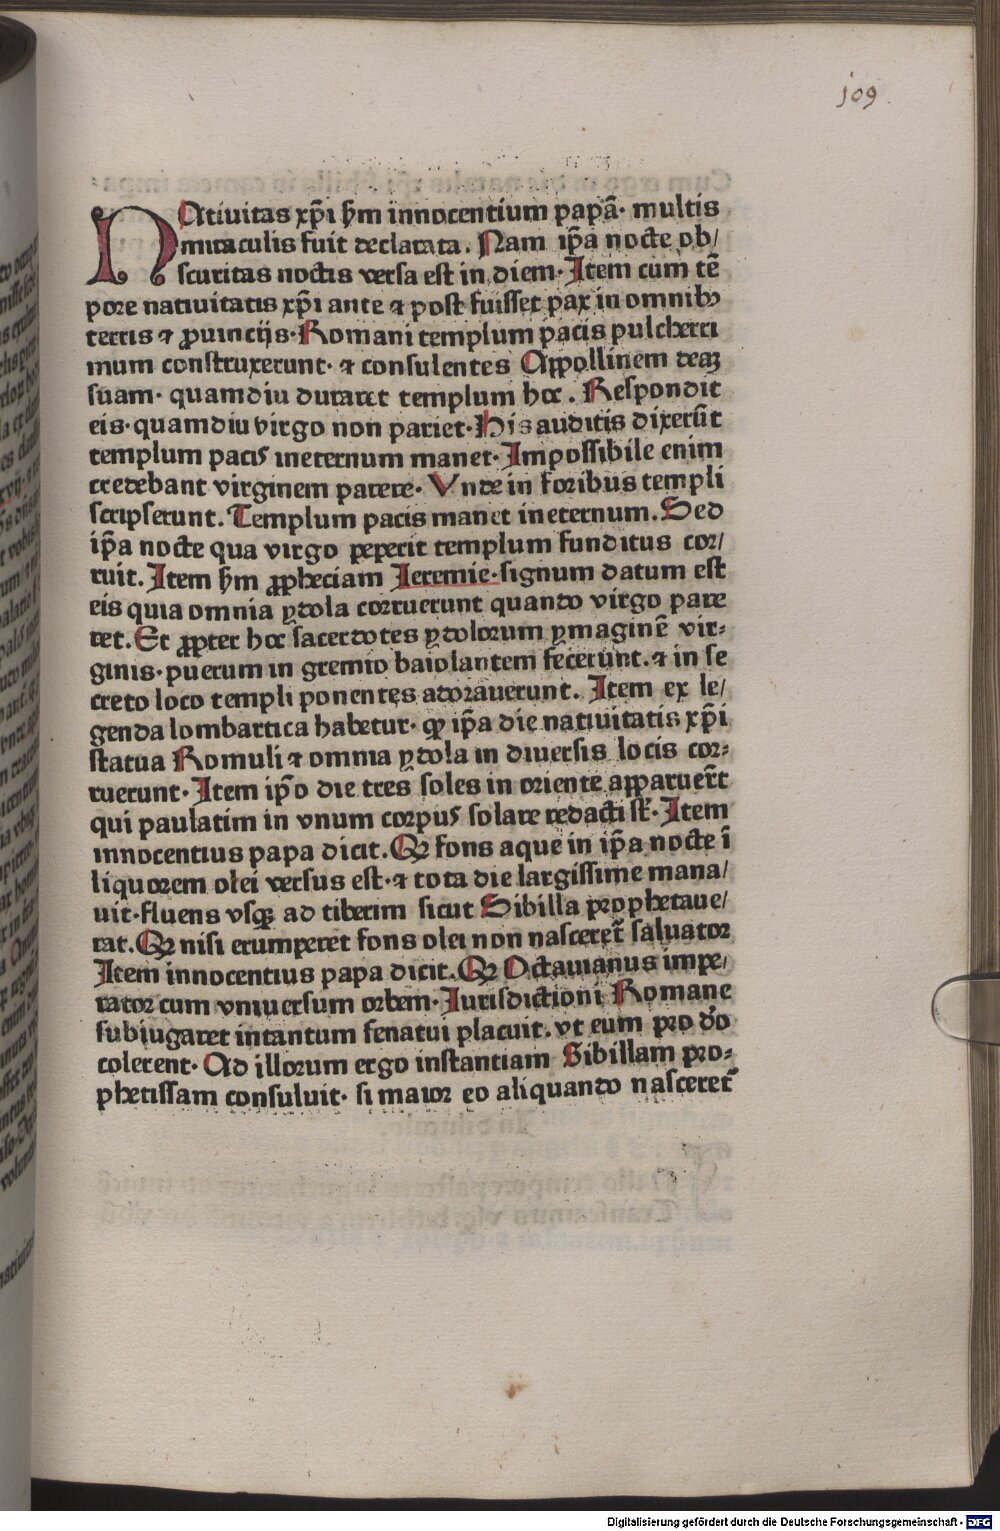 109
NAtiuitas xp̄i ẜm innocentium papā· multis
miraculis fuit declarata. Nam ip̄a nocte ob/
scuritas noctis versa est in diem· Item cum tē
pore natiuitatis xp̄i ante ⁊ post fuisset pax in omnibꝫ
terris ⁊ ꝓuincijs· Romani templum pacis pulcherri
mum construxerunt· ⁊ consulentes Appollinem deaꝫ
suam· quamdiu duraret templum hoc. Respondit
eis· quamdiu virgo non pariet· His auditis dixerūt
templum pacis ineternum manet· Impossibile enim
credebant virginem parere· Vnde in foribus templi
scripserunt. Templum pacis manet ineternum. Sed
ip̄a nocte qua virgo peperit templum funditus cor/
ruit. Item ẜm ꝓpheciam Ieremie· signum datum est
eis quia omnia ydola corruerunt quando virgo pare
ret. Et ꝓpter hoc sacerdotes ydolorum ymaginē vir⸗
ginis· puerum in gremio baiolantem fecerunt. ⁊ in se
creto loco templi ponentes adorauerunt. Item ex le/
genda lombartica habetur· ꝙ ip̄a die natiuitatis xp̄i
statua Romuli ⁊ omnia ydola in diuersis locis cor⸗
ruerunt· Item ip̄o die tres soles in oriente apparuer̄t
qui paulatim in vnum corpus solare redacti st̄· Item
innocentius papa dicit. Qꝫ fons aque in ip̄a nocte ī
liquorem olei versus est· ⁊ tota die largissime mana/
uit· fluens vsqꝫ ad tiberim sicut Sibilla prophetaue/
rat. Qꝫ nisi erumperet fons olei non nasceret̄ saluator
Item innocentius papa dicit. Qꝫ Octauianus impe/
rator cum vniuersum orbem· Iurisdictioni Romane
subiugaret intantum senatui placuit. vt eum pro dō
colerent· Ad illorum ergo instantiam Sibillam pro⸗
phetissam consuluit· si maior eo aliquando nasceret̄
Digitalisierung gefördert durch die Deutsche Forschungsgemeinschaft - DFG